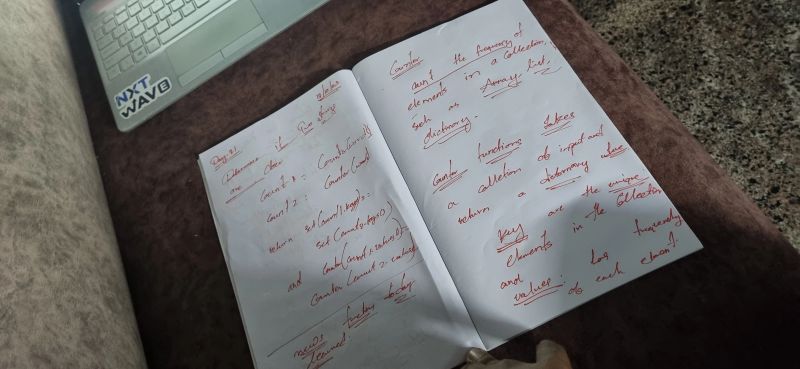 NXT
WAVE
Day 21
Determine if Two strings
are close
Count 1 = Counter(word1)
Count 2 = Counter(word2)
return set(count1.keys()) ==
set(count2.keys())
and Counter(count1.values()) ==
Counter(count2.values())
new function today
learned
Counter
count the frequency of
elements in a collection,
such as Array, list,
dictionary.
Counter functions takes
a collection of input and
return a dictionary where
key are the unique
elements in the collection
and has frequently
values: of each element.